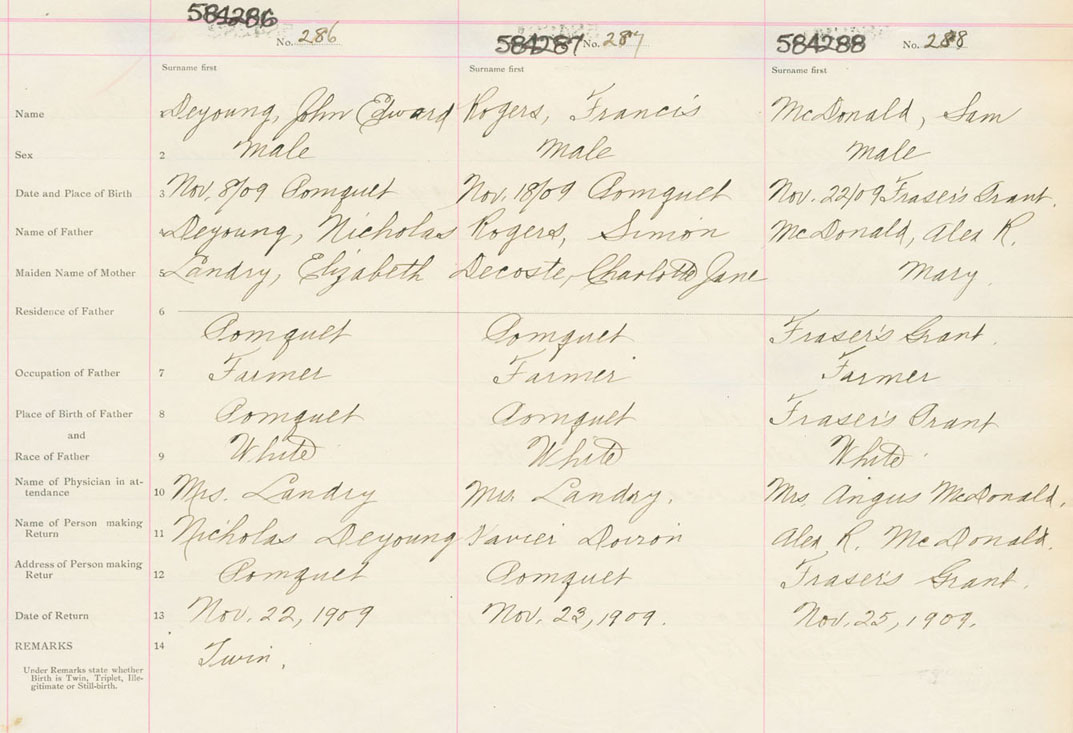 584286
No. 286
584287 No. 287
584288 No. 288
Surname first Surname first Surname first
Name 1 Deyoung, John Edward Rogers, Francis McDonald, Sam
Sex 2 Male Male Male
Date and Place of Birth 3 Nov. 8/09 Pomquet Nov. 18/09 Pomquet Nov. 22/09 Fraser's Grant.
Name of Father 4 Deyoung, Nicholas Rogers, Simon McDonald, Alex R.
Maiden Name of Mother 5 Landry, Elizabeth Decoste, Charlotte Jane Mary
Residence of Father 6
Pomquet Pomquet Fraser's Grant.
Occupation of Father 7 Farmer Farmer Farmer
Place of Birth of Father 8 Pomquet Pomquet Fraser's Grant
and
Race of Father 9 White White White
Name of Physician in at-
tendance 10 Mrs. Landry Mrs Landry. Mrs. Angus McDonald.
Name of Person making
Return 11 Nicholas Deyoung Xavier Doiron Alex R. McDonald.
Address of Person making
Retur 12 Pomquet Pomquet Fraser's Grant.
Date of Return 13 Nov. 22, 1909 Nov. 23, 1909. Nov. 25, 1909.
REMARKS 14 Twin.
Under Remarks state whether
Birth is Twin, Triplet, Ille-
gitimate or Still-birth.